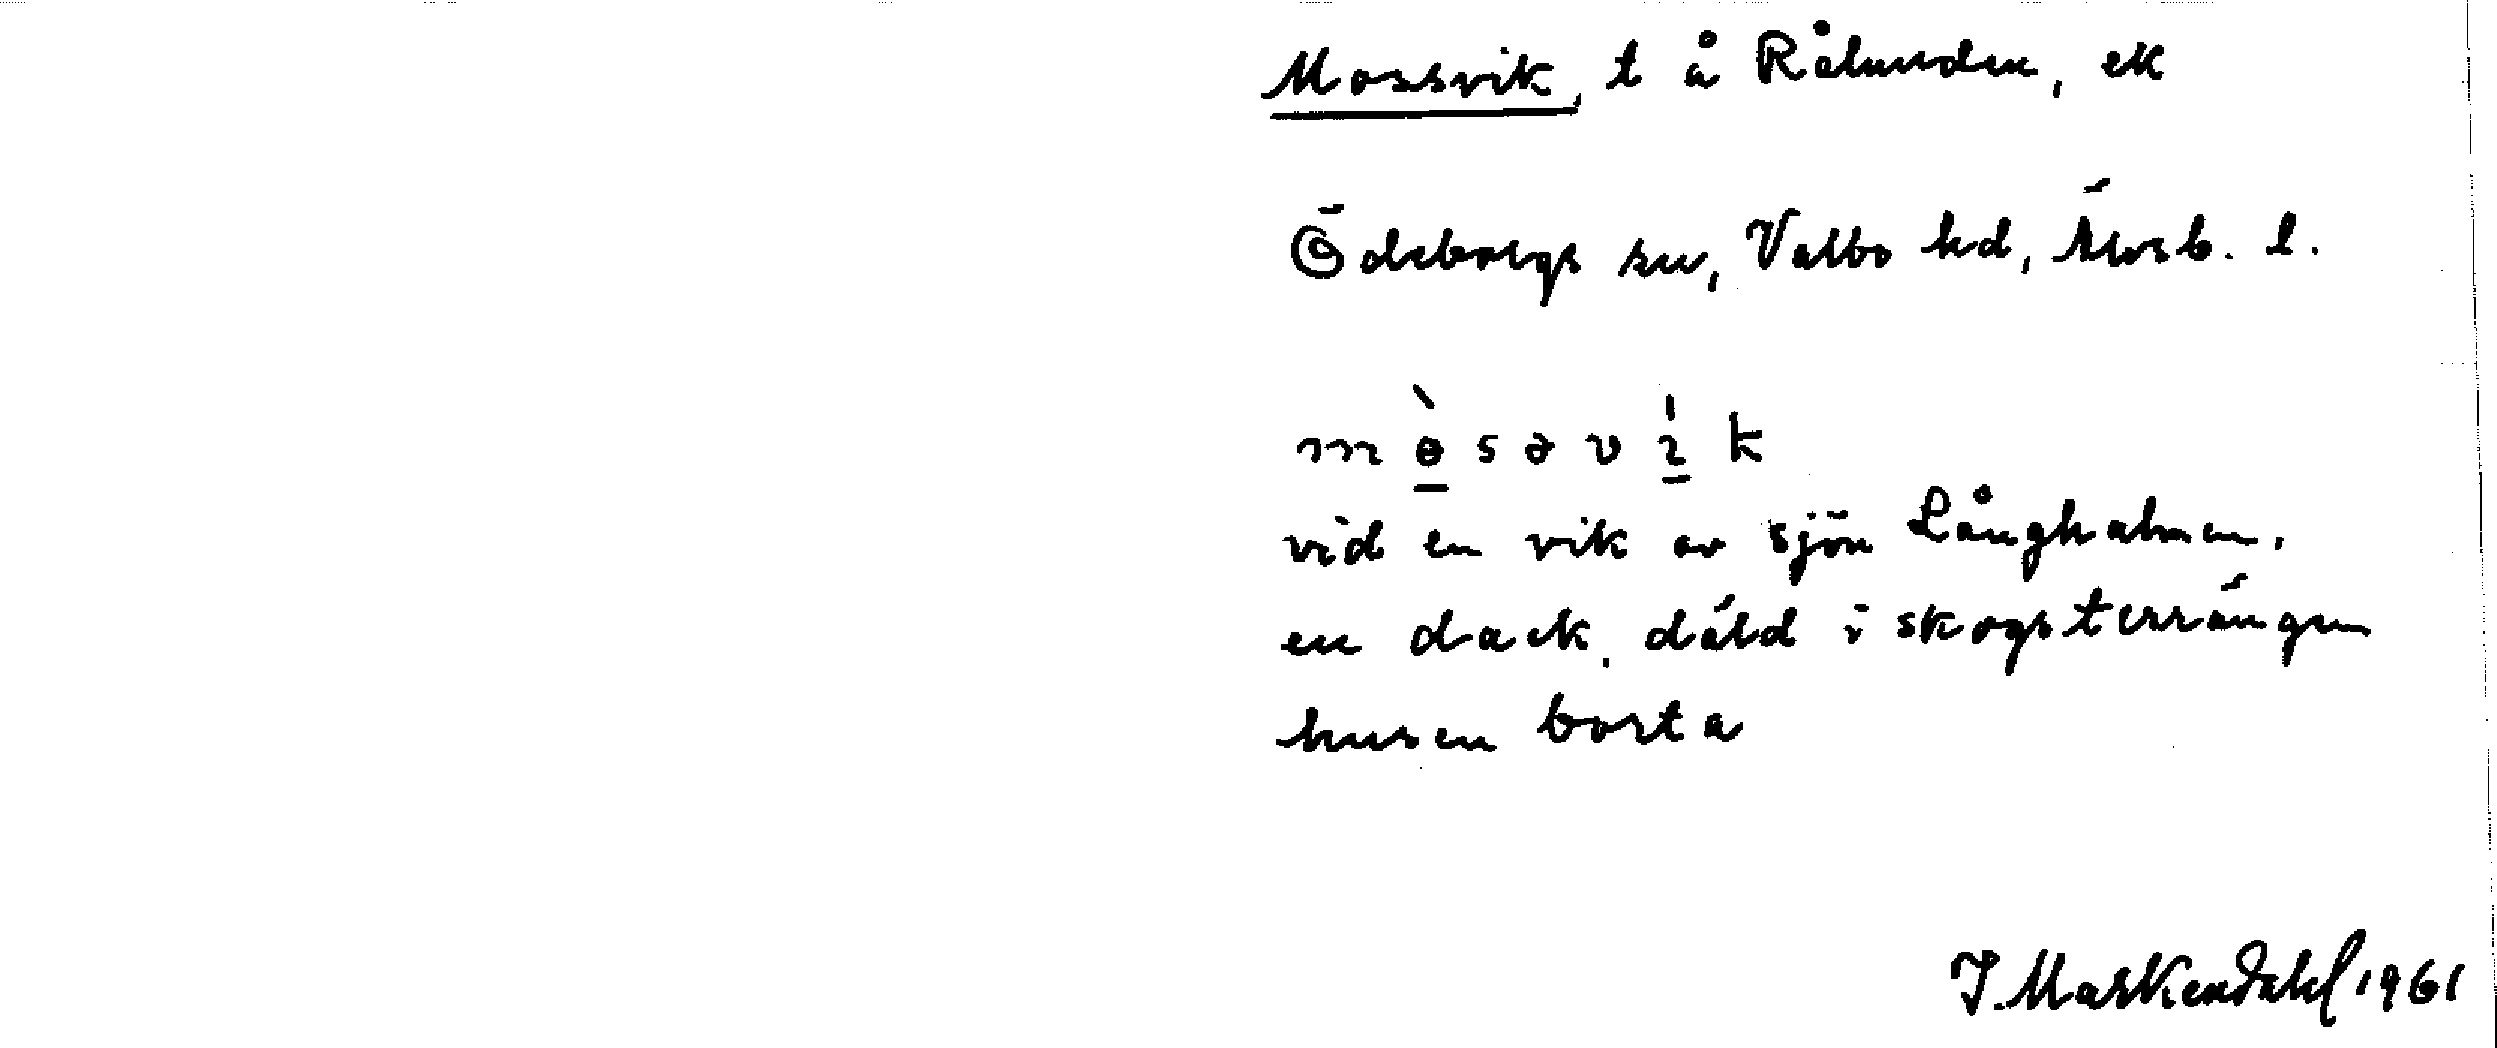 Mossvik, t å Rålunden, ek
Ödeborgs sn, Valbo hd, Älvsb. l.
m ò s ə v ì k
vid en vik av sjön Långhalmen.
en dack, däld i skogsterrängen
husen borta
J. Markendahl 1961